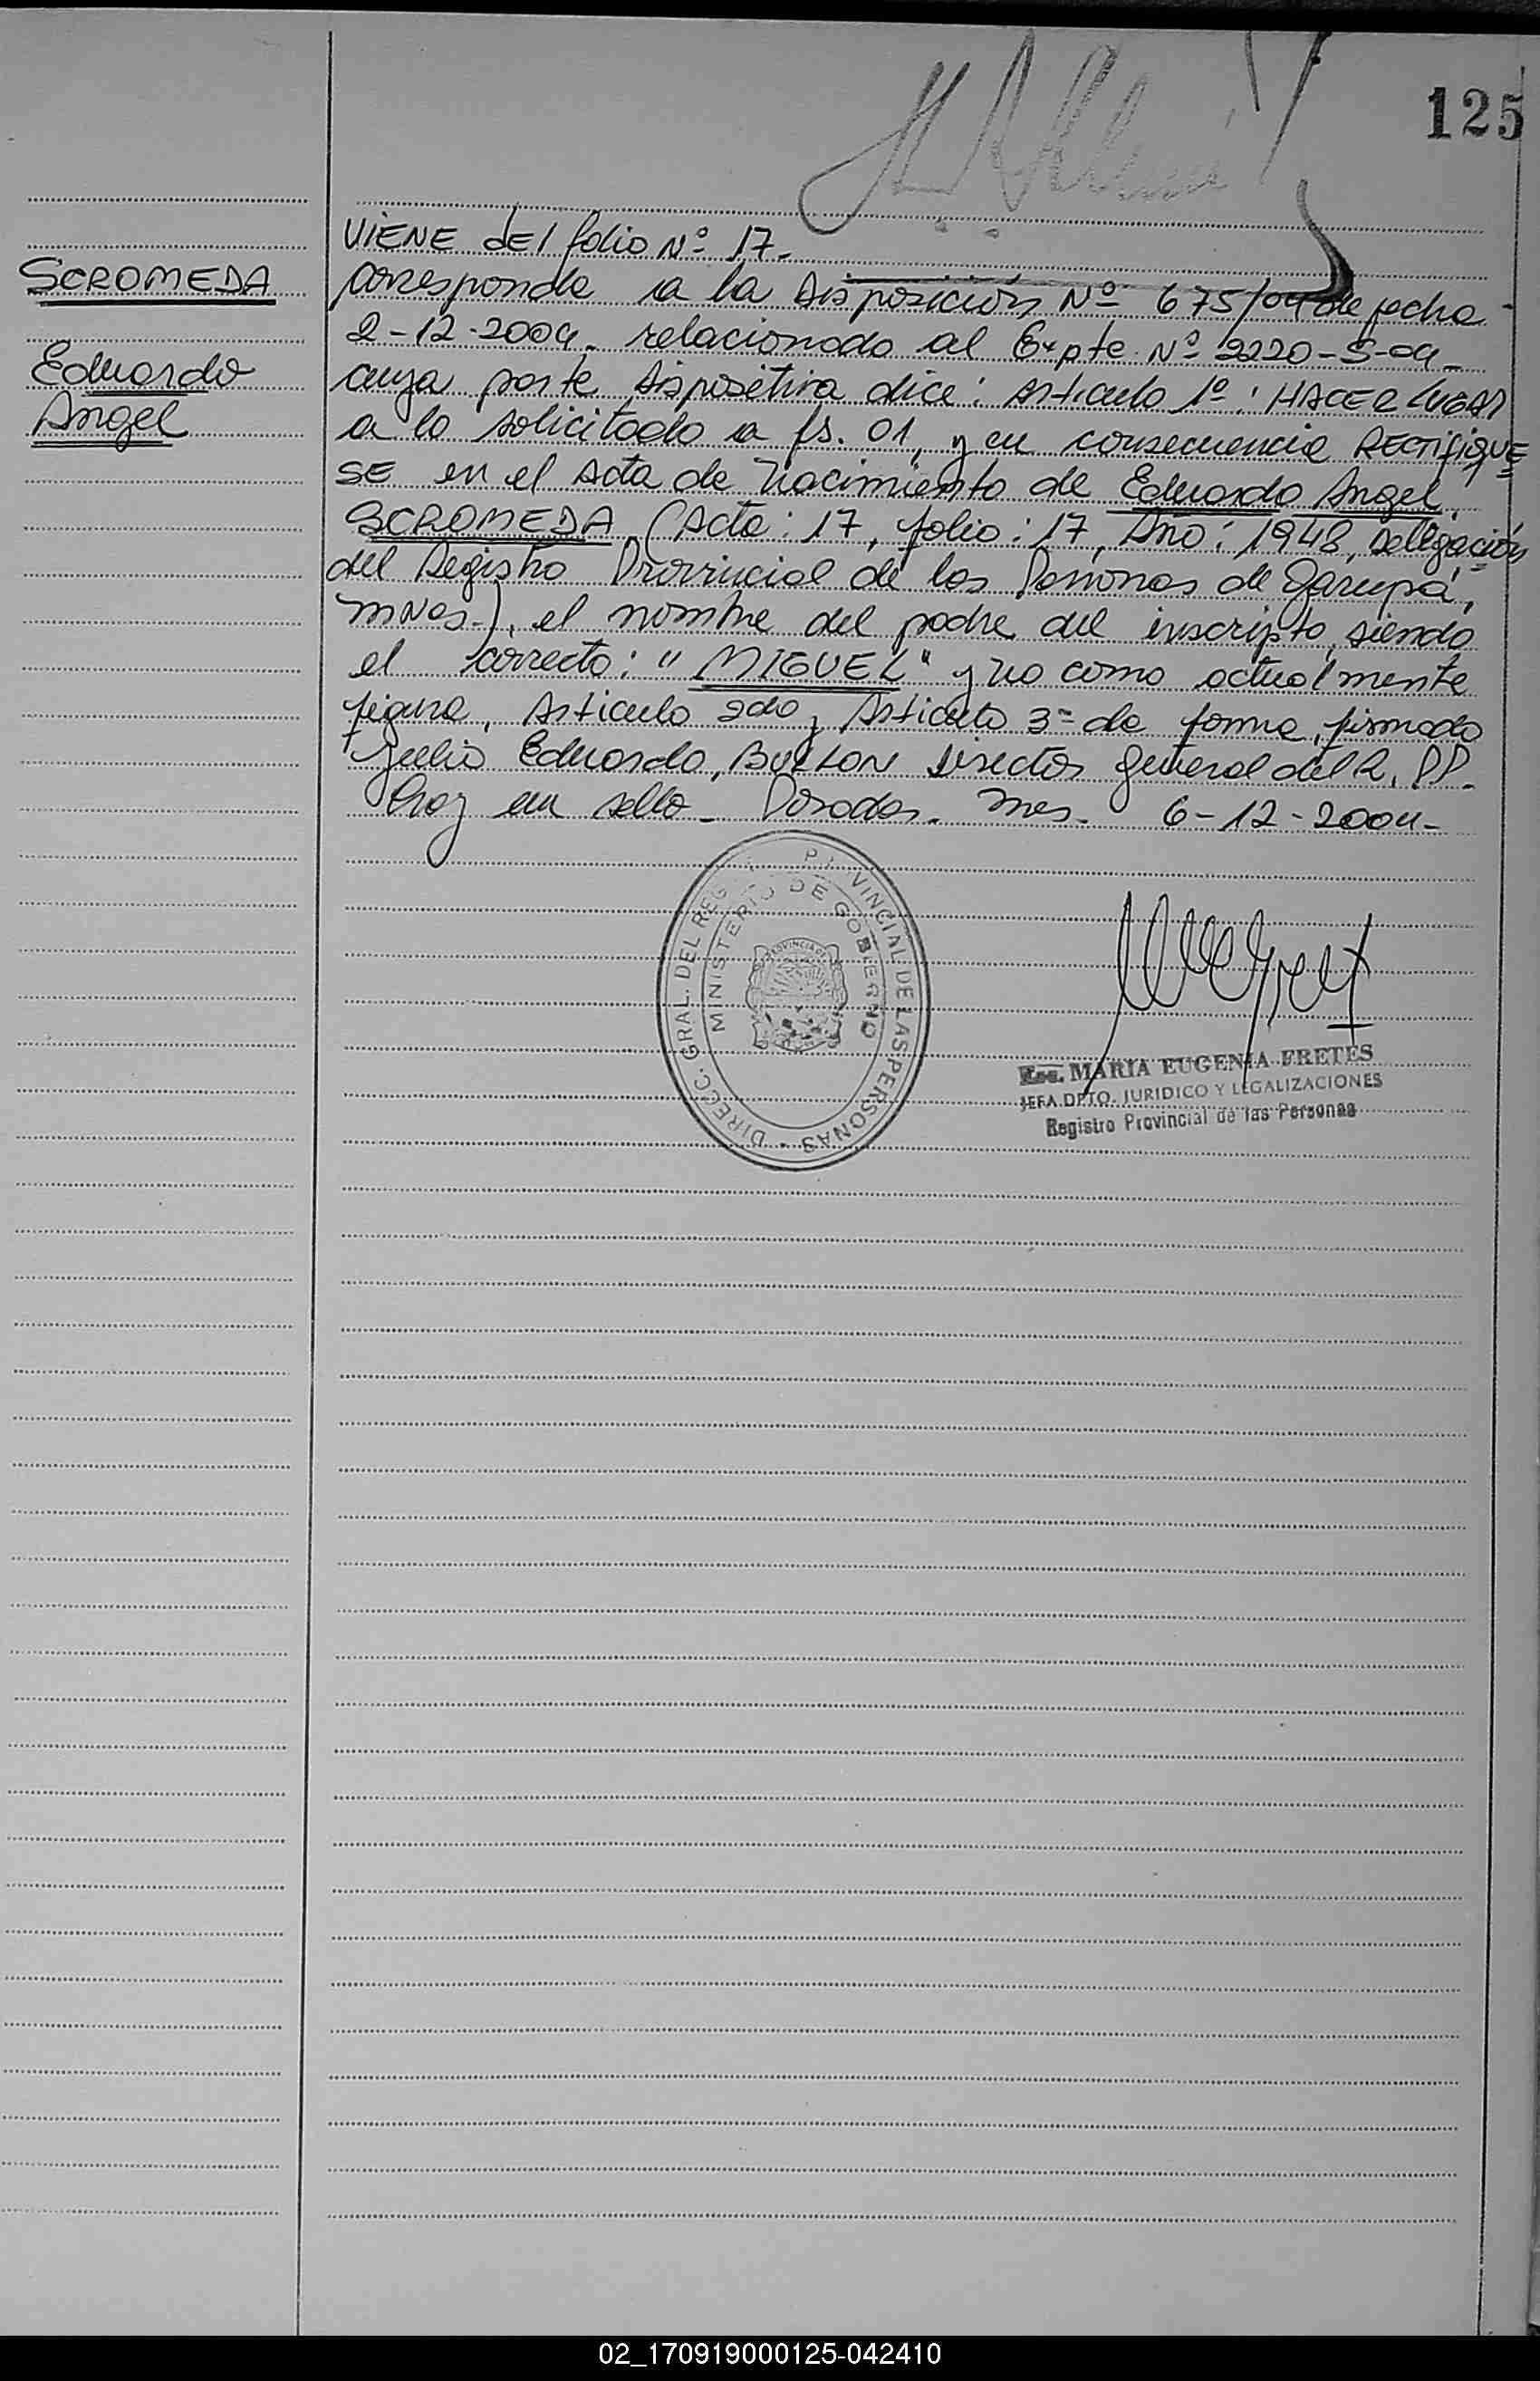 125
VIENE dEl folio Nº 17.-
SCROMEDA
Eduardo
Angel
corresponde a la Disposición Nº 675/04 de fecha
2-12-2004. relacionado al Expte Nº 2220-S-04-
cuya parte dispositiva dice: Articulo 1º: HACER LUGAR
a lo solicitado a fs. 01, y en consecuencia RECTIFIQUE
SE en el Acta de Nacimiento de Eduardo Angel
SCROMEDA (Acta: 17, folio: 17, Año: 1948, Delegación
del Registro Provincial de las Personas de Garupá,
MNES.), el nombre del padre del inscripto, siendo
el correcto: "MIGUEL" y no como actualmente
figura, Articulo 2do y Articulo 3º de forma, firmado
Julio Eduardo, Director General del R. PP.
hay un sello - Posadas. Mnes. 6-12-2004-
DIRECC. GRAL. DEL REG PROVINCIAL DE LAS PERSONAS
MINISTERIO DE GOBIERNO
PROVINCIA DE
Esc. MARIA EUGENIA FRETES
JEFA DPTO. JURIDICO Y LEGALIZACIONES
Registro Provincial de las Personas
02_170919000125-042410